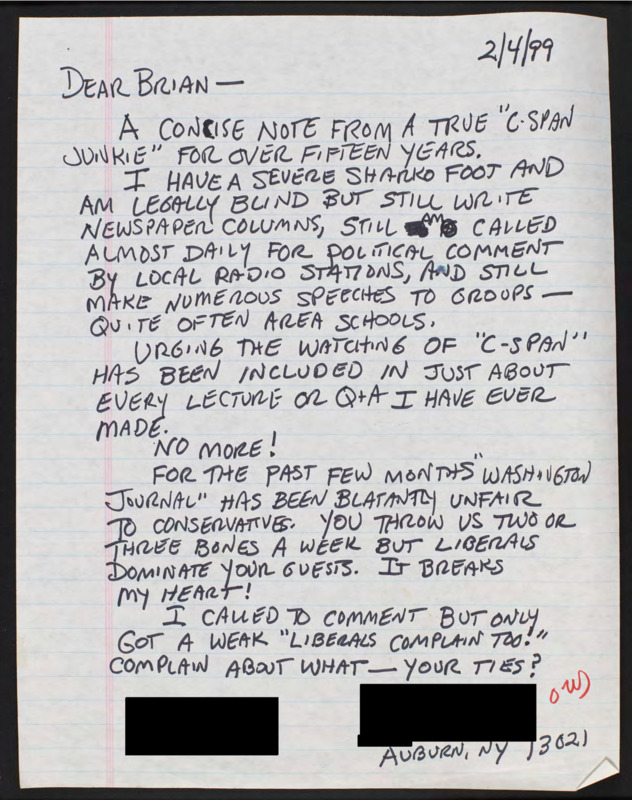 2/4/99
DEAR BRIAN —
A CONCISE NOTE FROM A TRUE "C-SPAN
JUNKIE" FOR OVER FIFTEEN YEARS.
I HAVE A SEVERE SHARKO FOOT AND
AM LEGALLY BLIND BUT STILL WRITE
NEWSPAPER COLUMNS, STILL AM CALLED
ALMOST DAILY FOR POLITICAL COMMENT
BY LOCAL RADIO STATIONS, AND STILL
MAKE NUMEROUS SPEECHES TO GROUPS —
QUITE OFTEN AREA SCHOOLS.
URGING THE WATCHING OF "C-SPAN"
HAS BEEN INCLUDED IN JUST ABOUT
EVERY LECTURE OR Q+A I HAVE EVER
MADE.
NO MORE!
FOR THE PAST FEW MONTHS "WASHINGTON
JOURNAL" HAS BEEN BLATANTLY UNFAIR
TO CONSERVATIVES. YOU THROW US TWO OR
THREE BONES A WEEK BUT LIBERALS
DOMINATE YOUR GUESTS. IT BREAKS
MY HEART!
I CALLED TO COMMENT BUT ONLY
GOT A WEAK "LIBERALS COMPLAIN TOO!"
COMPLAIN ABOUT WHAT — YOUR TIES?
AUBURN, NY 13021